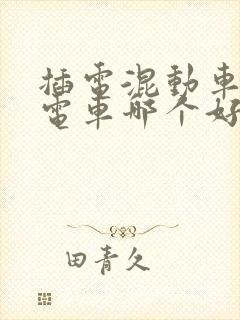 插電混動車
電車哪个好
田青久